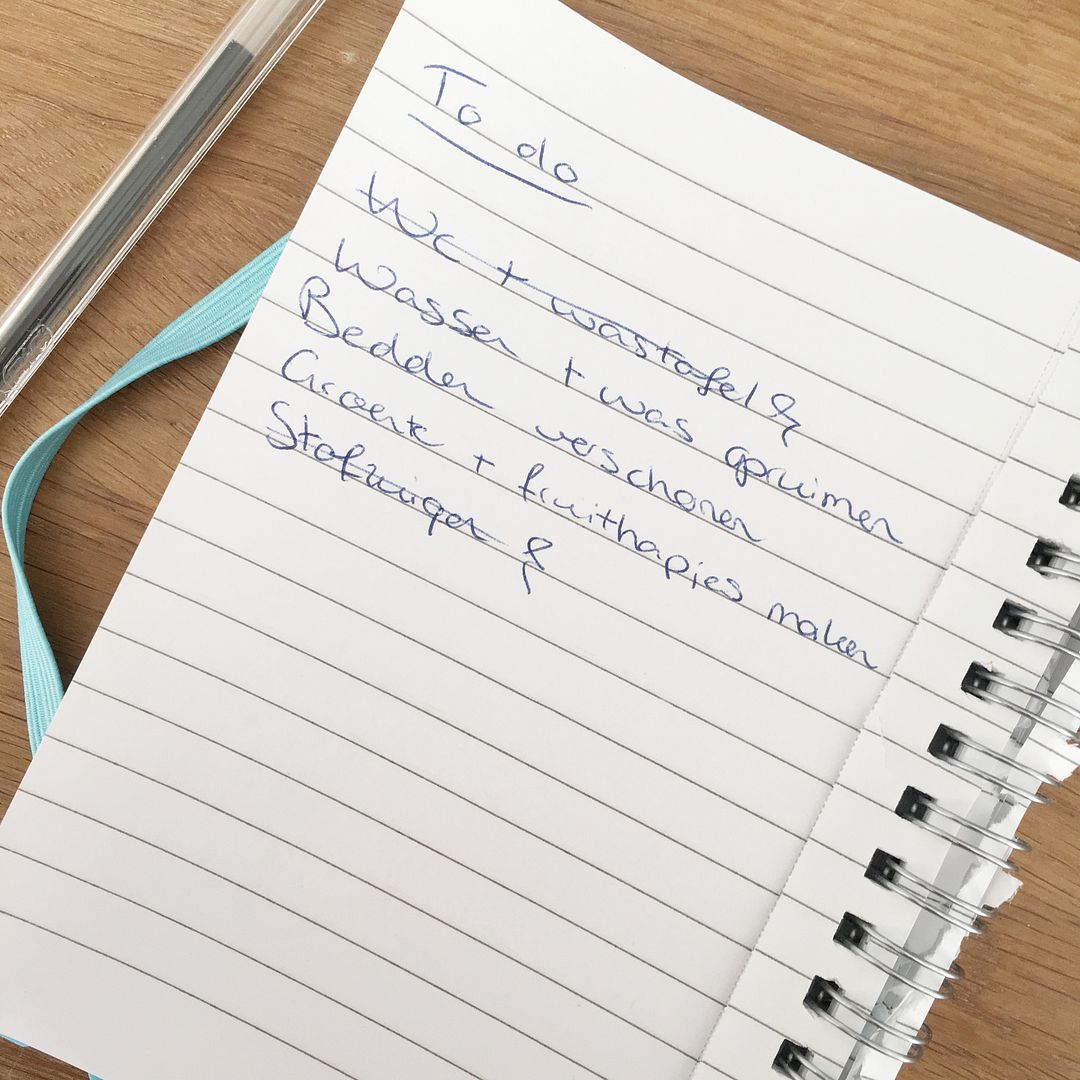 To do
Wc + wastafel
Wassen + was opruimen
Bedden verschonen
Groente + fruithapjes maken
Stofzuigen